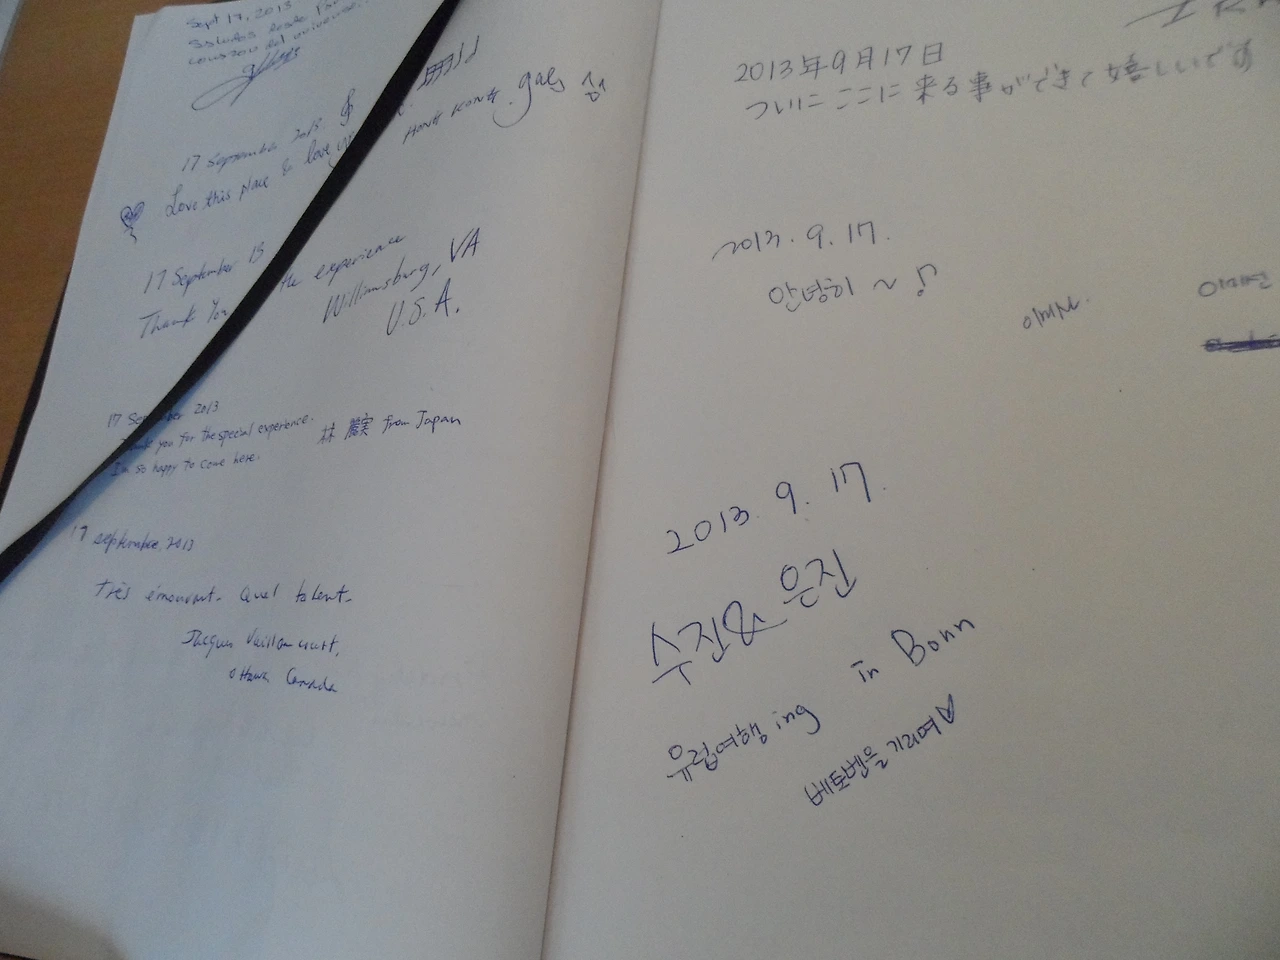 Sept 17, 2013
Saludos desde
corazón del universo.
17 September 2013.
Love this place & love
HONG KONG gals
17 September 13
Thank You the experience
Williamsburg, VA
U.S.A.
17 September 2013
Thank you for the special experience.
I'm so happy to come here.
林 from Japan
17 septembre 2013
Très émouvant. Quel talent.
Jacques Vaillancourt,
Ottawa Canada
2013年9月17日
ついにここに来る事ができて嬉しいです
2013. 9. 17.
안녕히 ~ ♪
2013. 9. 17.
수진 & 은진
유럽여행 ing in Bonn
베토벤을 기리며♡